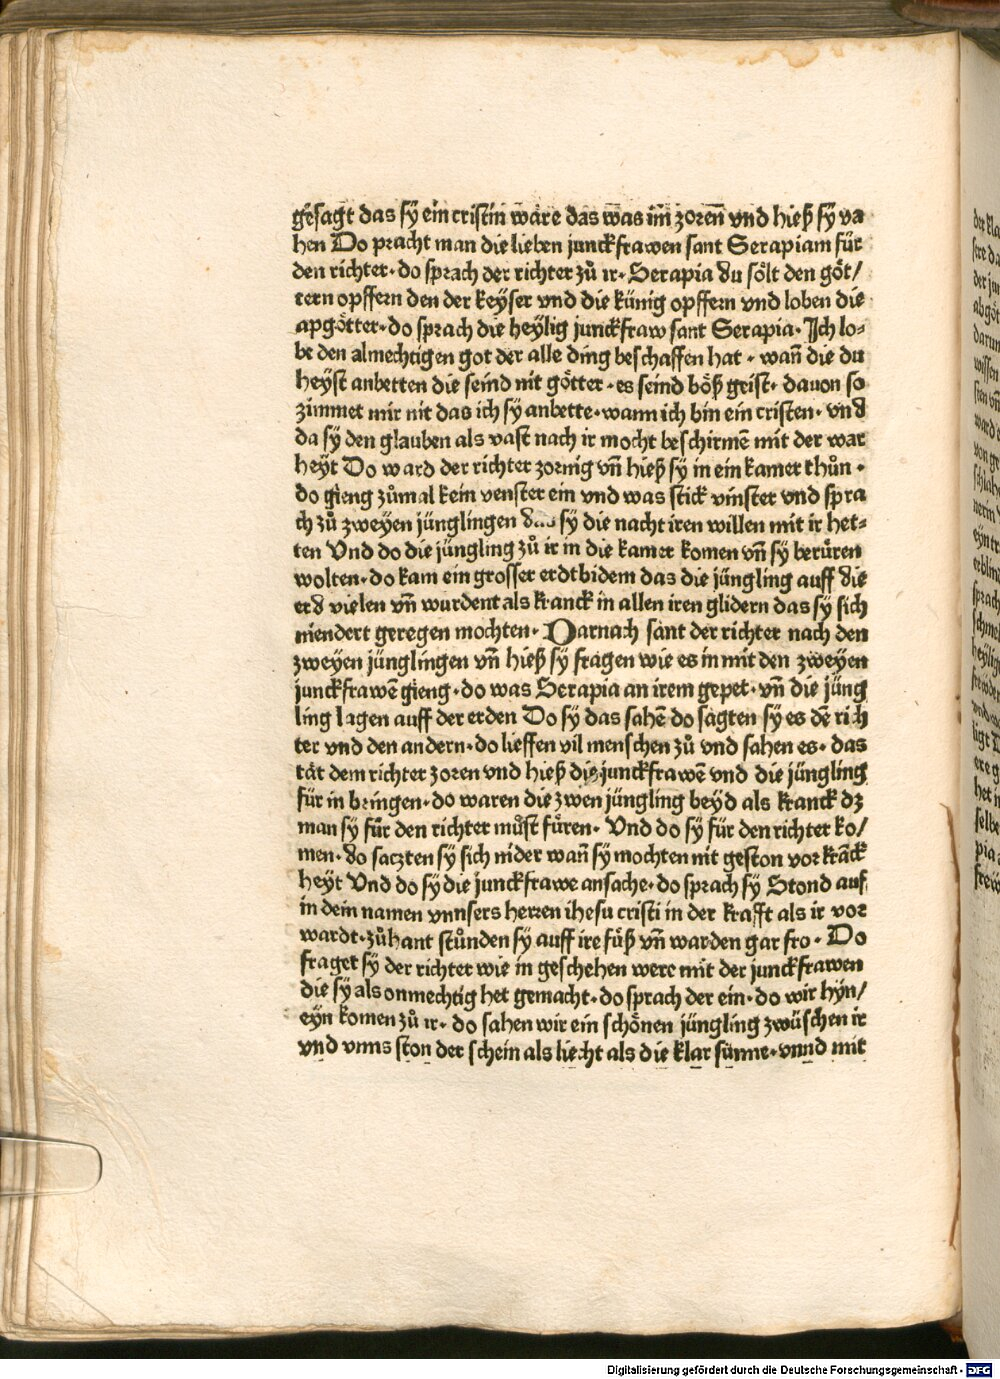 gesagt das sÿ ein cristin wäre das was im̄ zoren̄ vnd hieß sÿ va
hen Do pracht man die lieben junckfrawen sant Serapiam für
den richter · do sprach der richter zů ir · Serapia du sölt den göt/
tern opffern den der keÿser vnd die künig opffern vnd loben die
apgötter · do sprach die heÿlig junckfraw sant Serapia · Ich lo⸗
be den almechtigen got der alle ding beschaffen hat · wan̄ die du
heÿst anbetten die seind nit götter · es seind böß geist · dauon so
zimmet mir nit das ich sÿ anbette · wann ich bin ein cristen · vnd
da sÿ den glauben als vast nach ir mocht beschirmē mit der war
heÿt Do ward der richter zornig vn̄ hieß sÿ in ein kamer thůn ·
do gieng zůmal kein venster ein vnd was stick vinster vnd spra
ch zů zweÿen jünglingen das sÿ die nacht iren willen mit ir het⸗
ten Vnd do die jüngling zů ir in die kamer komen vn̄ sÿ berüren
wolten · do kam ein grosser erdtbidem das die jüngling auff die
erd vielen vn̄ wurdent als kranck in allen iren glidern das sÿ sich
niendert geregen mochten · Darnach sant der richter nach den
zweÿen jünglingen vn̄ hieß sÿ fragen wie es in mit den zweÿen
junckfrawē gieng · do was Serapia an irem gepet · vn̄ die jüng
ling lagen auff der erden Do sÿ das sahē do sagten sÿ es dē rich
ter vnd den andern · do lieffen vil menschen zů vnd sahen es · das
tät dem richter zoren vnd hieß die junckfrawē vnd die jüngling
für in bringen · do waren die zwen jüngling beÿd als kranck dz
man sÿ für den richter můst füren · Vnd do sÿ für den richter ko/
men · do saczten sÿ sich nider wan̄ sÿ mochten nit geston vor krāck
heÿt Vnd do sÿ die junckfrawe ansache · do sprach sÿ Stond auf
in dem namen vnnsers herren ihesu cristi in der krafft als ir vor
wardt · zůhant stůnden sÿ auff ire füß vn̄ warden gar fro · Do
fraget sÿ der richter wie in geschehen were mit der junckfrawen
die sÿ als onmechtig het gemacht · do sprach der ein · do wir hÿn/
eÿn komen zů ir · do sahen wir ein schönen jüngling zwüschen ir
vnd vnns ston der schein als liecht als die klar sunne · vnnd mit
Digitalisierung gefördert durch die Deutsche Forschungsgemeinschaft - DFG